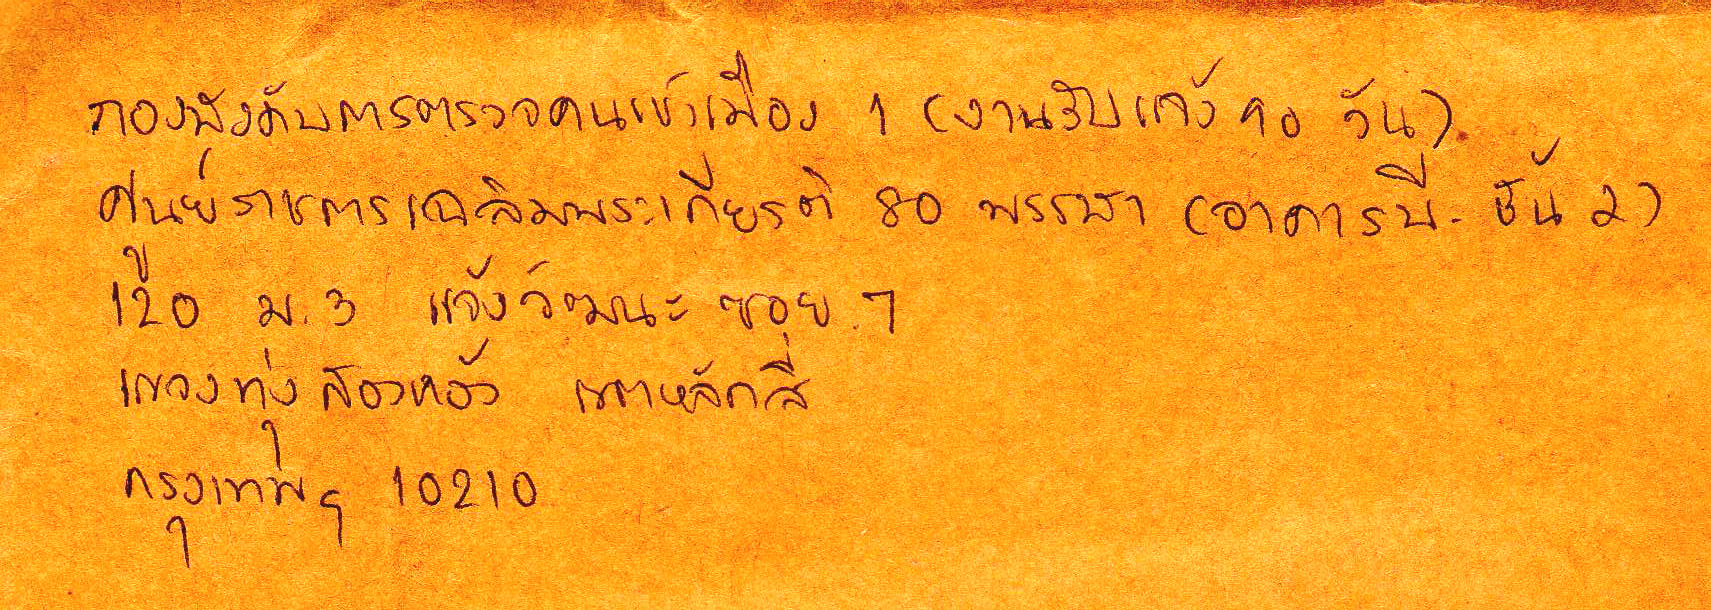 กองบังคับการตรวจคนเข้าเมือง 1 (งานรับแจ้ง 90 วัน)
ศูนย์ราชการเฉลิมพระเกียรติ 80 พรรษา (อาคารบี - ชั้น 2)
120 ม.3 แจ้งวัฒนะ ซอย 7
แขวงทุ่งสองห้อง เขตหลักสี่
กรุงเทพฯ 10210